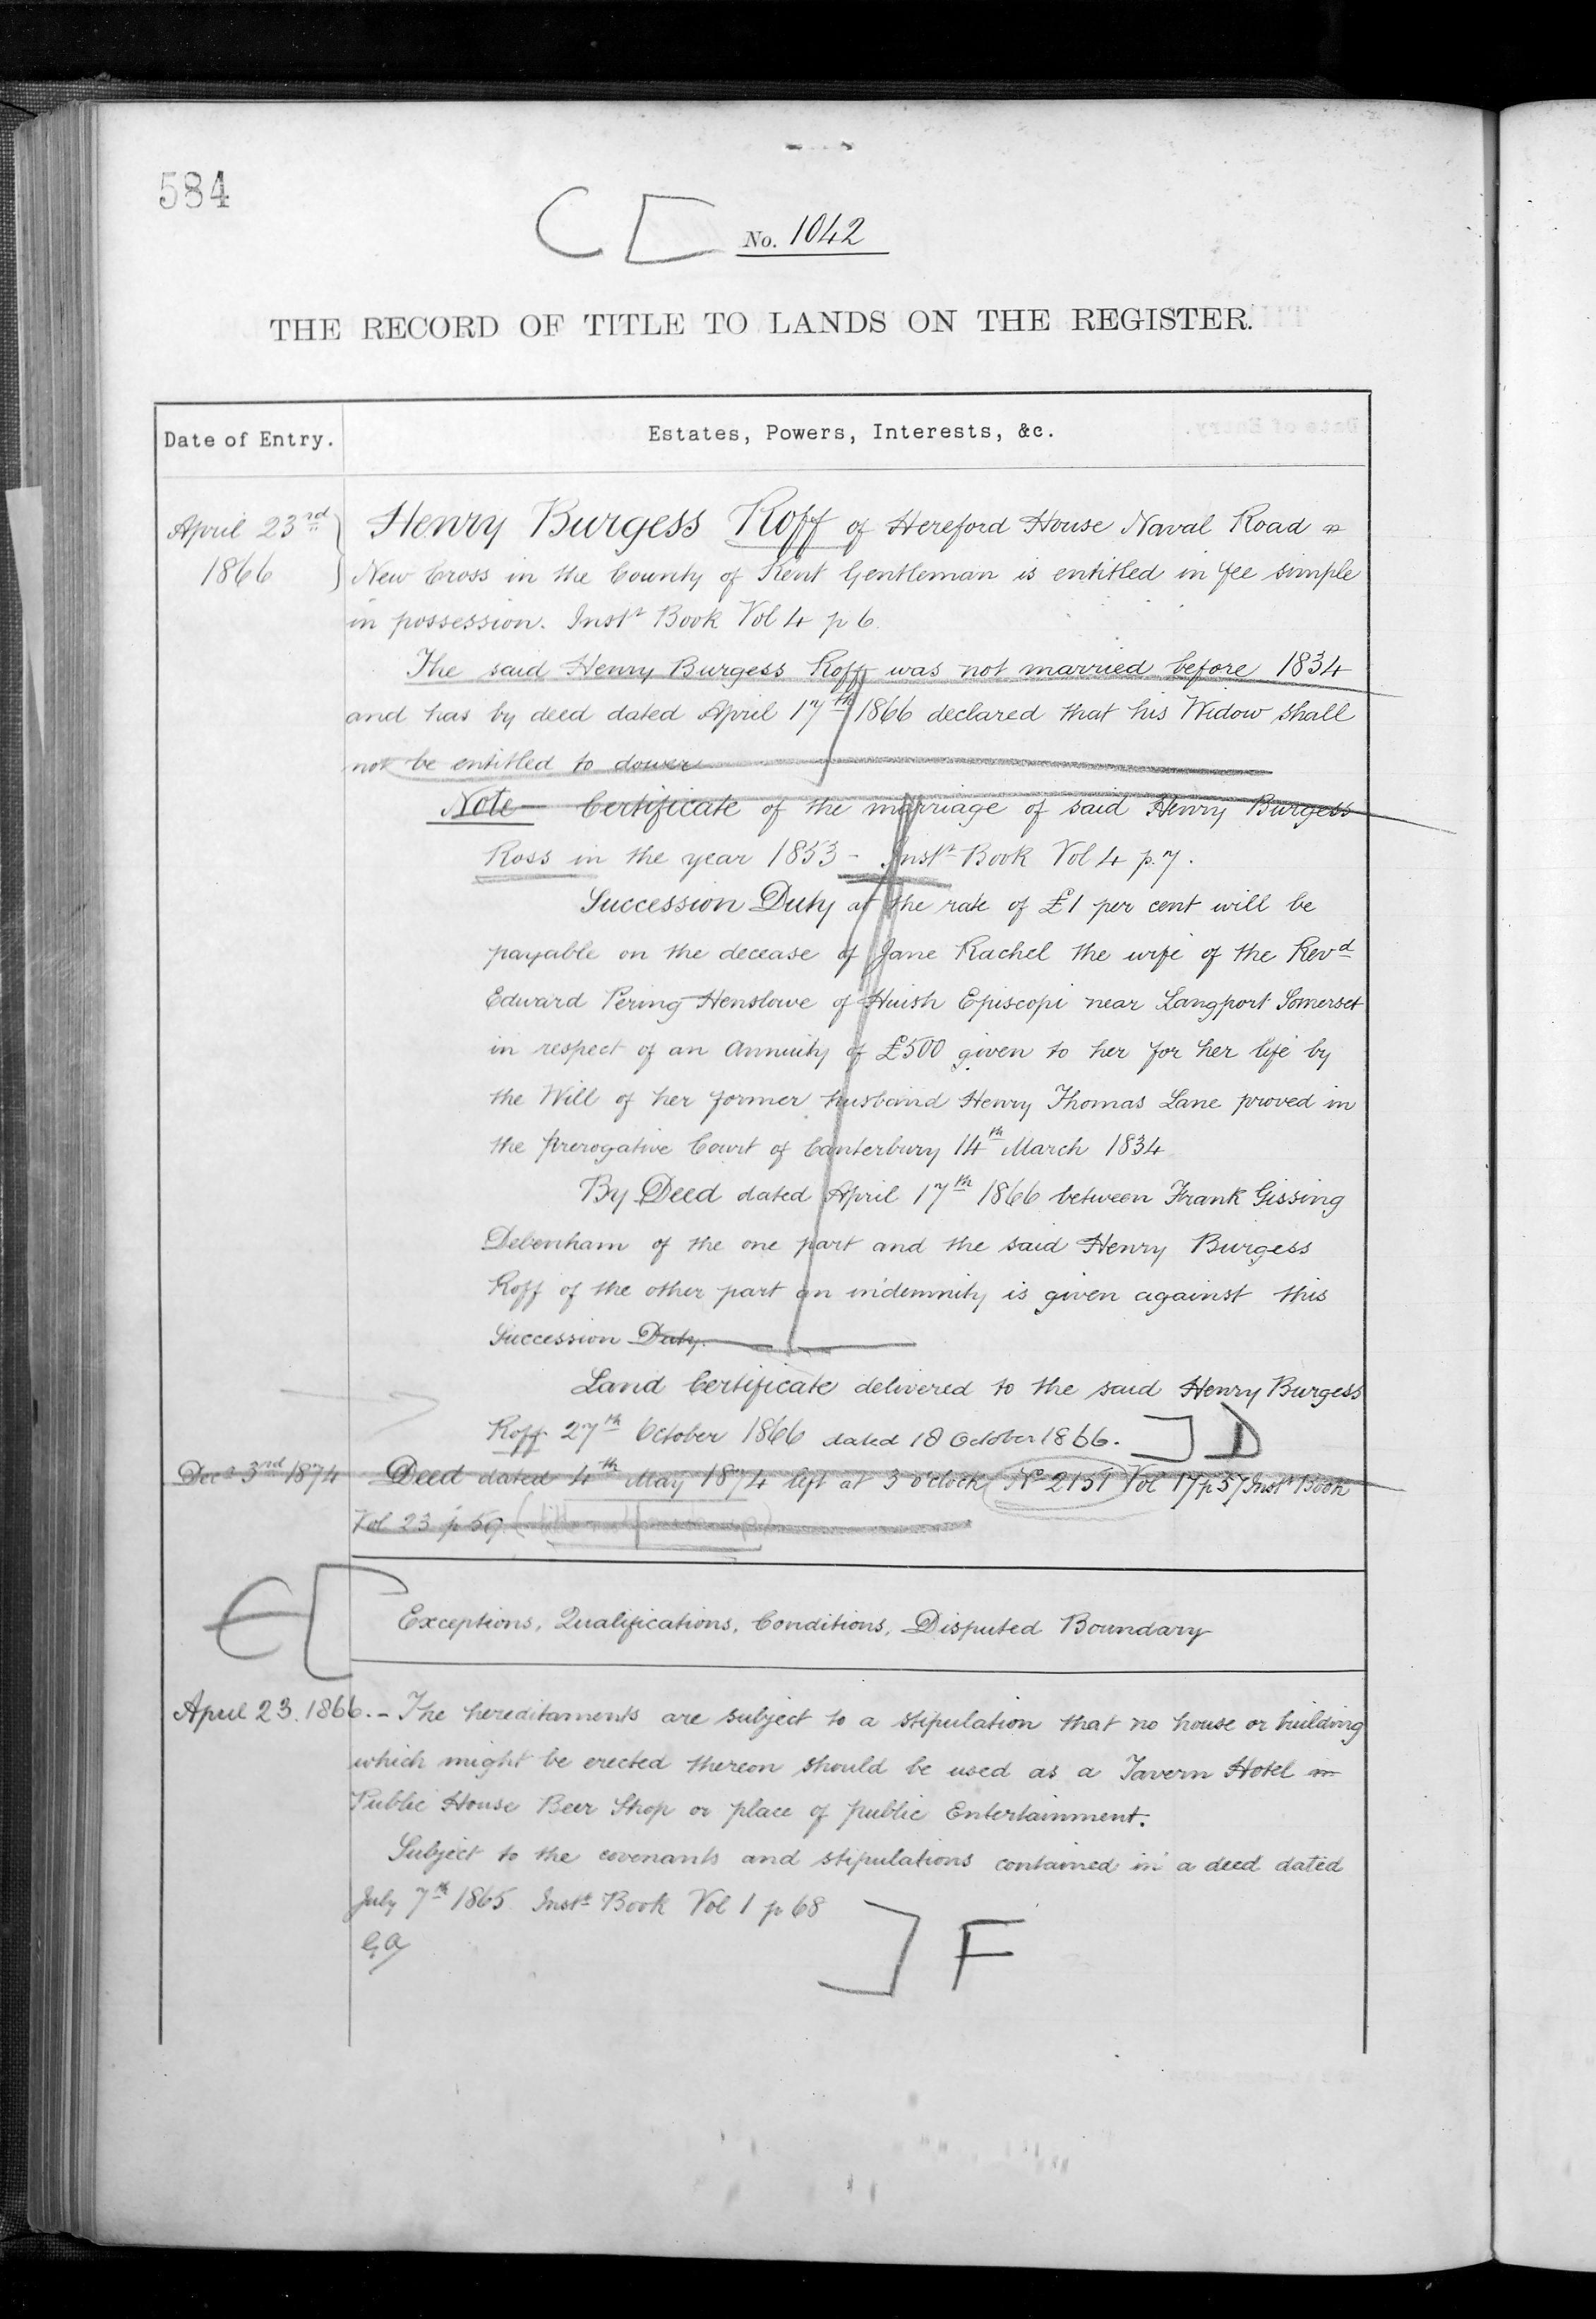 584
C [ No. 1042
THE RECORD OF TITLE TO LANDS ON THE REGISTER.
Date of Entry.
Estates, Powers, Interests, &c.
April 23rd 1866
Henry Burgess Roff of Hereford House Naval Road
New Cross in the County of Kent Gentleman is entitled in fee simple
in possession. Instt Book Vol 4 p 6.
The said Henry Burgess Roff was not married before 1834
and has by deed dated April 17th 1866 declared that his Widow shall
not be entitled to dower
Note - Certificate of the marriage of said Henry Burgess
Ross in the year 1853 - Instt Book Vol 4 p. 7.
Succession Duty at the rate of £1 per cent will be
payable on the decease of Jane Rachel the wife of the Revd
Edward Pering Henslowe of Huish Episcopi near Langport Somerset
in respect of an Annuity of £500 given to her for her life by
the Will of her former husband Henry Thomas Lane proved in
the prerogative Court of Canterbury 14th March 1834
By Deed dated April 17th 1866 between Frank Gissing
Debenham of the one part and the said Henry Burgess
Roff of the other part an indemnity is given against this
Succession Duty.
Land Certificate delivered to the said Henry Burgess
Roff 27th October 1866 dated 18 October 1866. ] D
Decr 3rd 1874 Deed dated 4th May 1874 left at 3 o'clock No 2151 Vol 17 p 57 Instt Book
Vol 23 p 59
E [
Exceptions, Qualifications, Conditions, Disputed Boundary
April 23. 1866. - The hereditaments are subject to a stipulation that no house or building
which might be erected thereon should be used as a Tavern Hotel
Public House Beer Shop or place of public Entertainment.
Subject to the covenants and stipulations contained in a deed dated
July 7th 1865 Instt Book Vol 1 p 68
] F